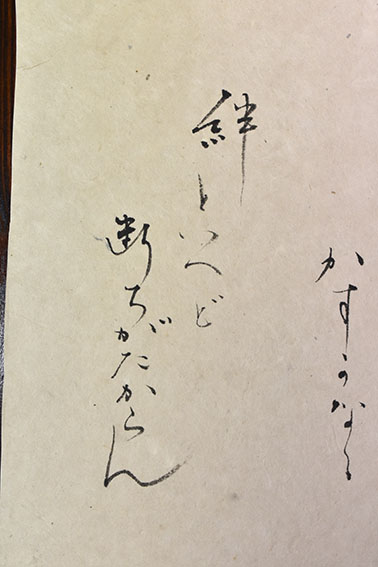 かすかなる
絆といへど
断ちがたからん